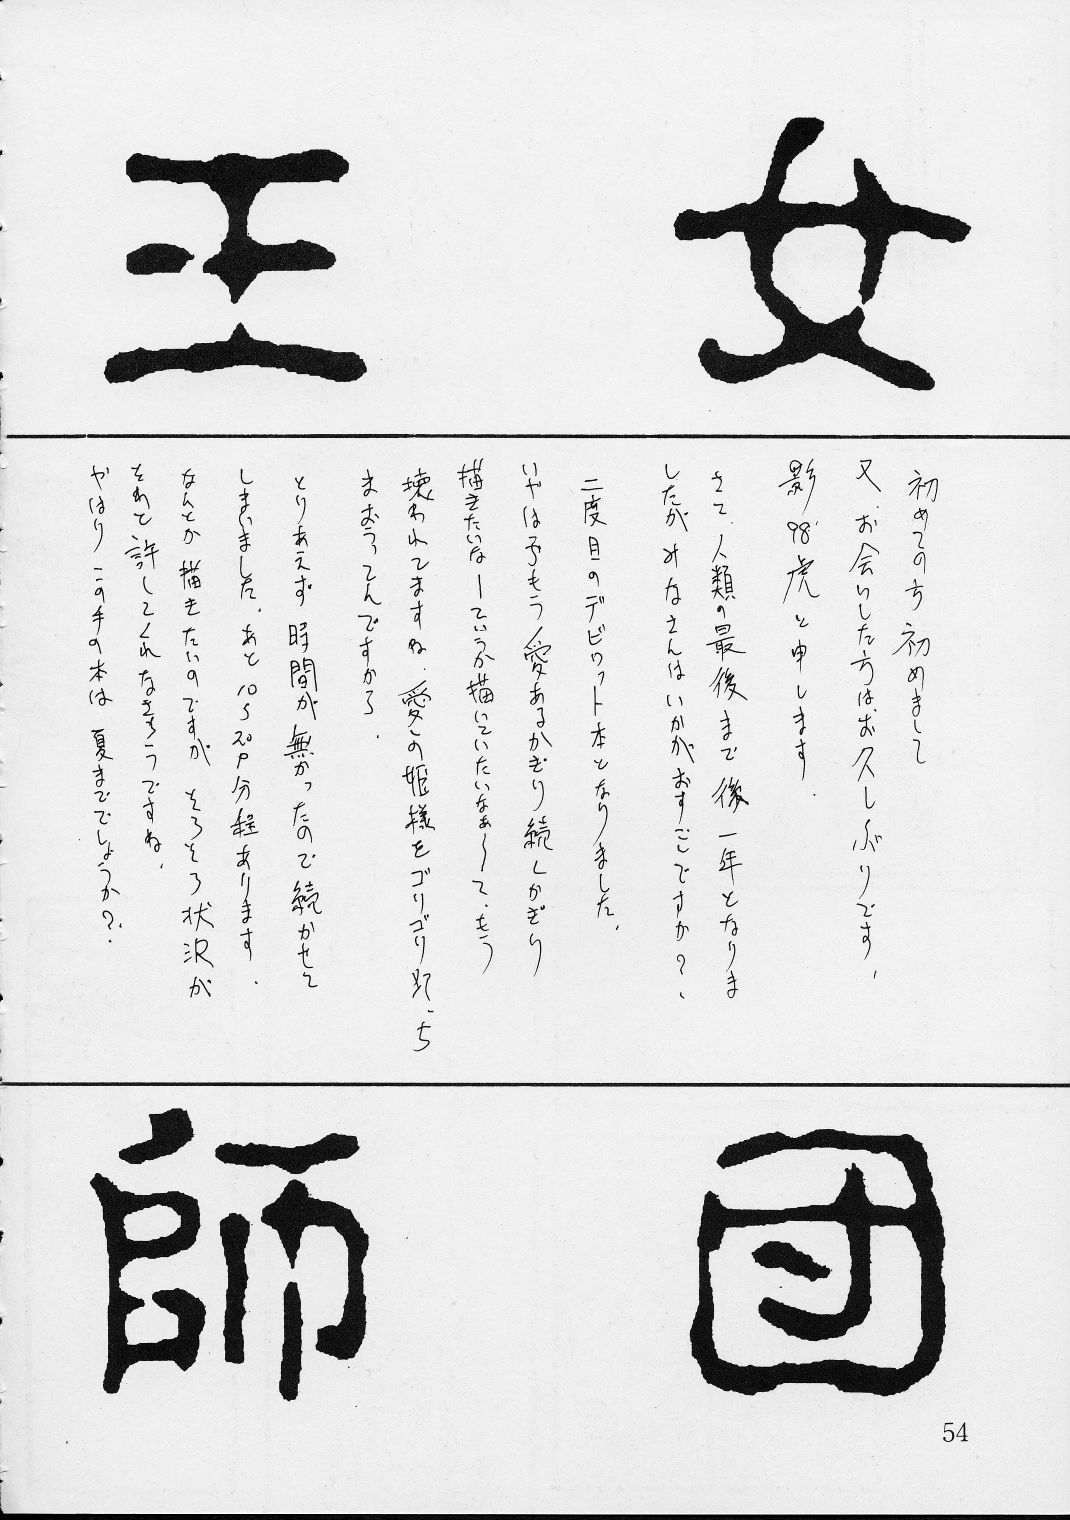 女王
初めての方初めまして
又、お会いした方はお久しぶりです、
影98'虎と申します.
さて、人類の最後まで後一年となりま
したがみなさんはいかがおすごしですか?、
二度目のデビット本となりました、
いやは予もう愛あるかぎり続くかぎり
描きたいなーていうか描いていたいなぁ〜て、もう
壊われてますね、愛の姫様をゴリゴリ 、ち
まおうってんですから、
とりあえず時間が無かったので続かせて
しまいました、あと10〜20P分程あります.
なんとか描きたいのですがそろそろ状況が
それを許してくれなさそうですね、
やはりこの手の本は夏まででしょうか?、
師団
54